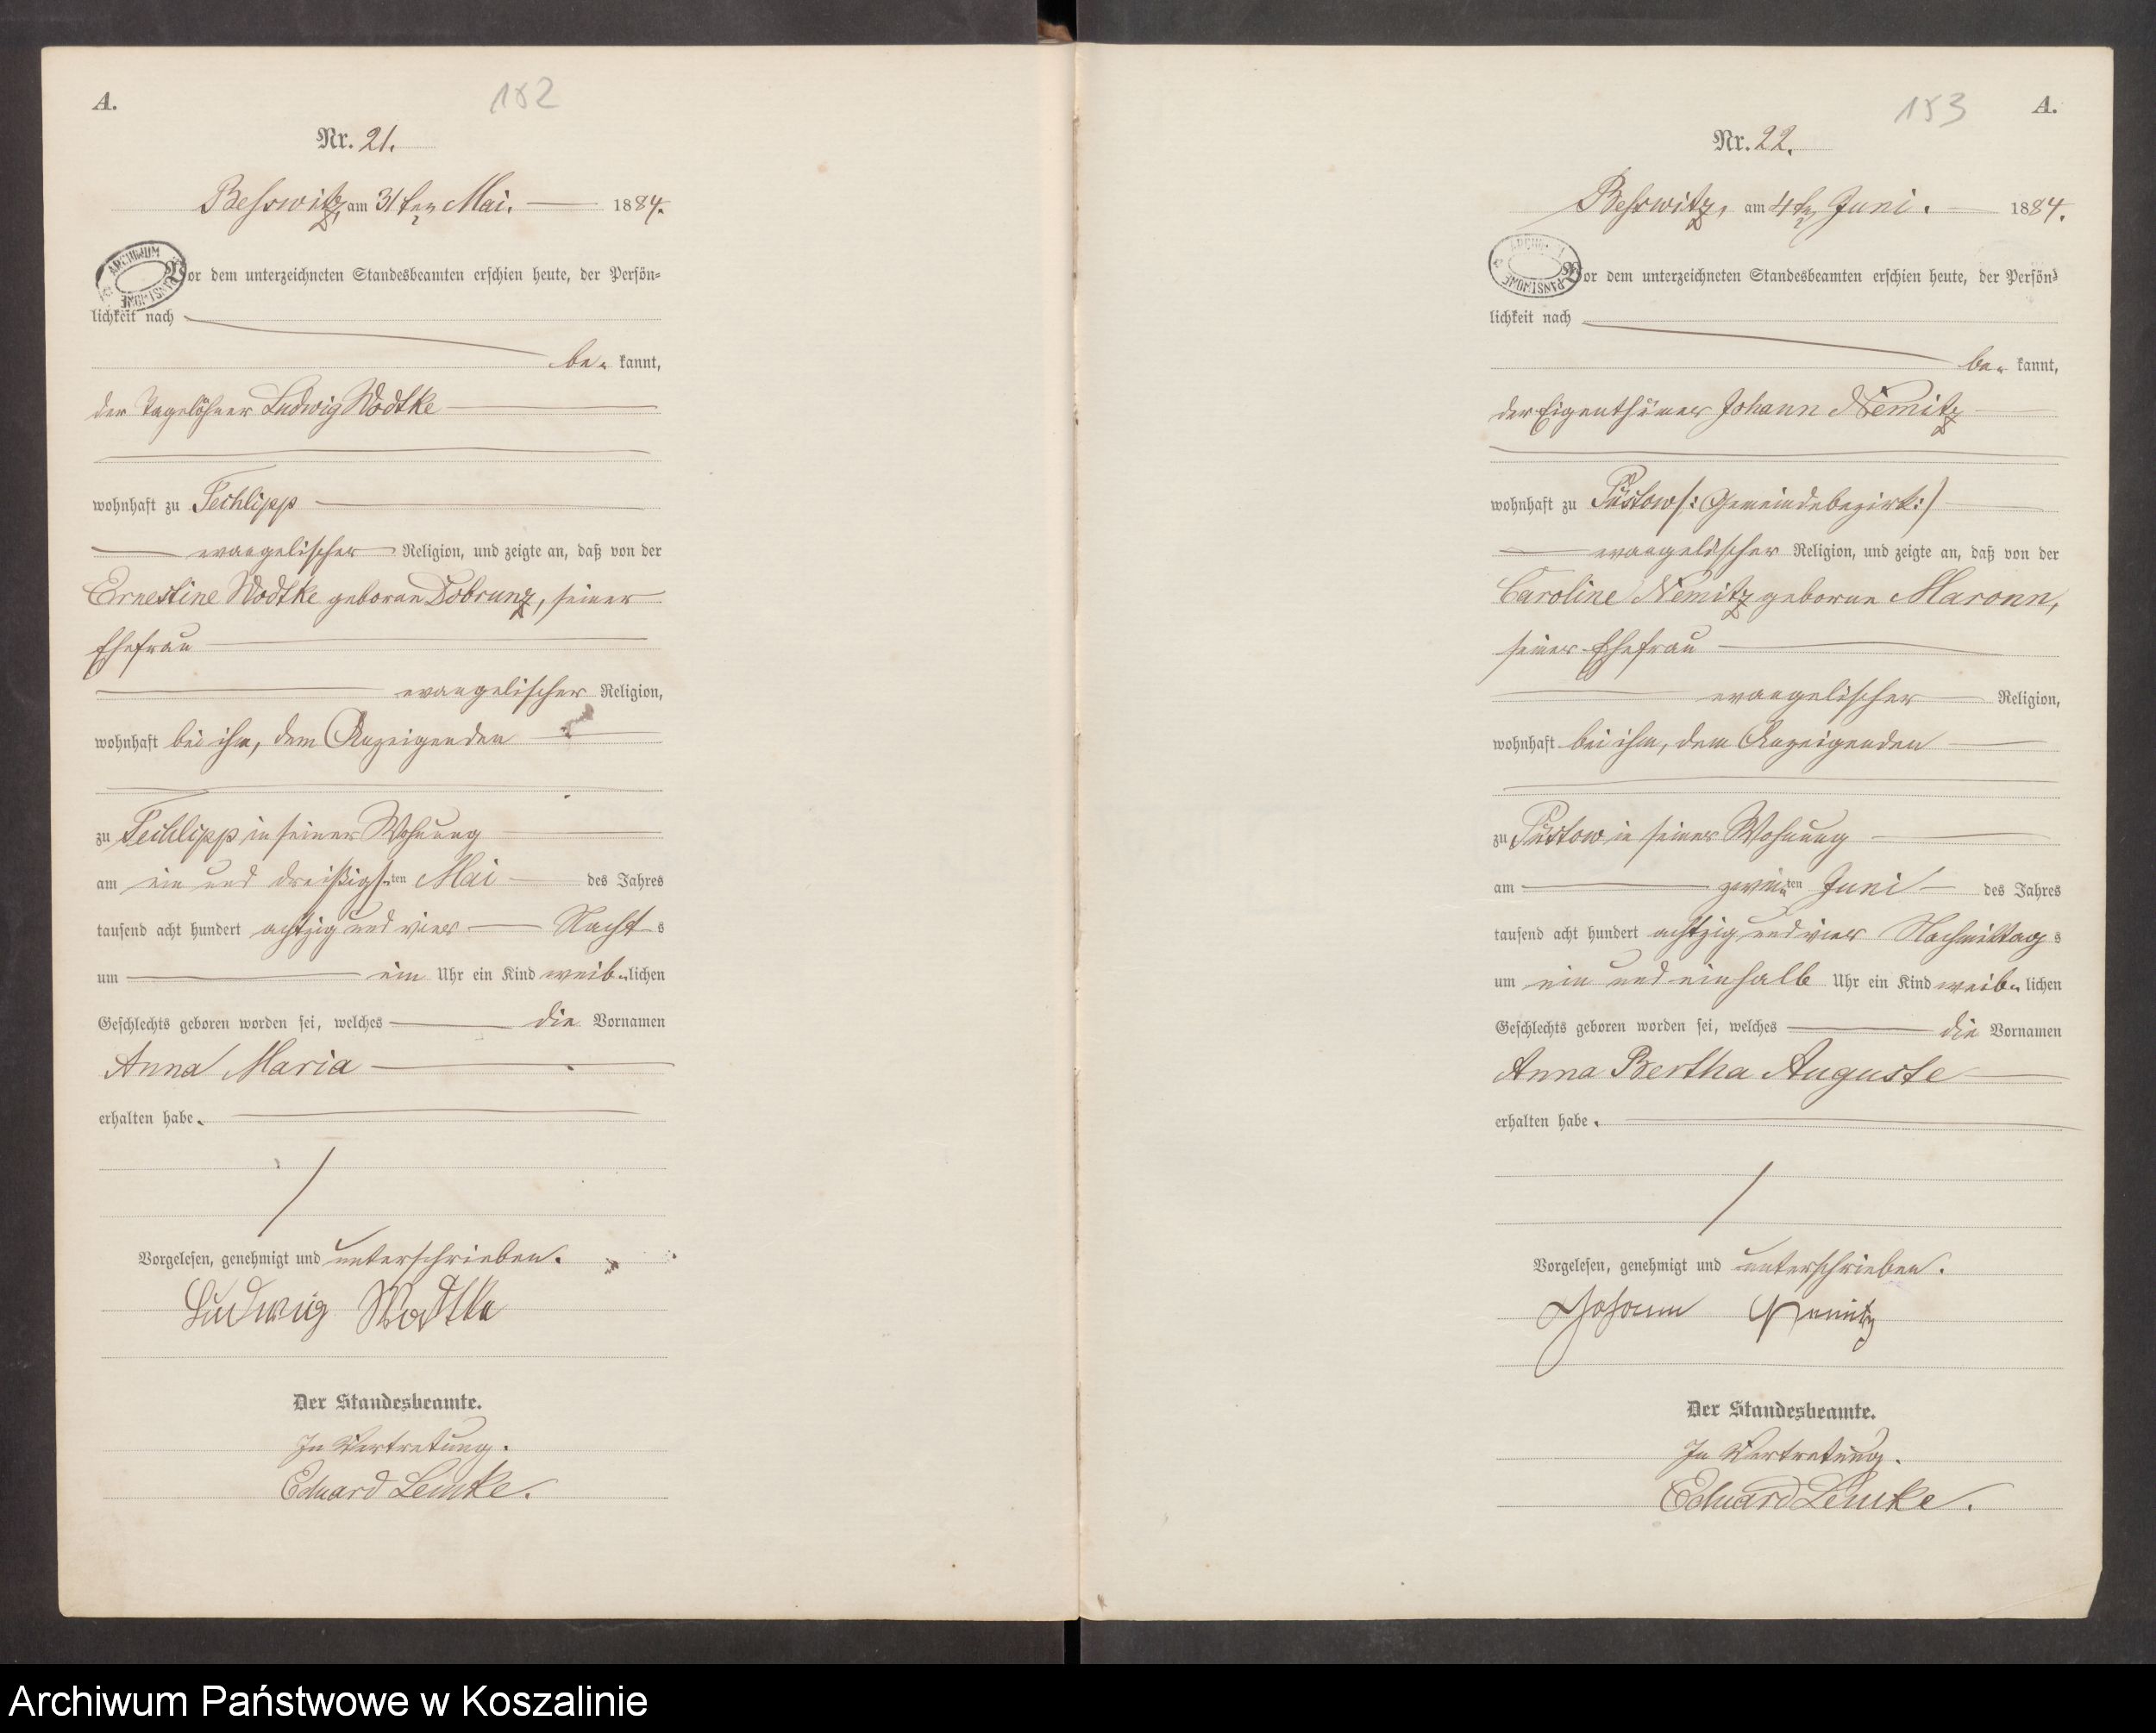 A.
182
Nr. 21.
Besswitz, am 31ten Mai. 1884.
ARCHIWUM PAŃSTWOWE
Vor dem unterzeichneten Standesbeamten erschien heute, der Persön-
lichkeit nach
be- kannt,
der Tagelöhner Ludwig Wodtke
wohnhaft zu Techlipp
evangelischer Religion, und zeigte an, daß von der
Ernestine Wodtke geborene Dobrunz, seiner
Ehefrau
evangelischer Religion,
wohnhaft bei ihm, dem Anzeigenden
zu Techlipp in seiner Wohnung
am ein und dreißigsten Mai des Jahres
tausend acht hundert achtzig und vier Nachts
um ein Uhr ein Kind weib-lichen
Geschlechts geboren worden sei, welches die Vornamen
Anna Maria
erhalten habe.
Vorgelesen, genehmigt und unterschrieben.
Ludwig Wodtke
Der Standesbeamte.
In Vertretung.
Eduard Lemke.
183
A.
Nr. 22.
Besswitz, am 4ten Juni. 1884.
ARCHIWUM PAŃSTWOWE
Vor dem unterzeichneten Standesbeamten erschien heute, der Persön-
lichkeit nach
be- kannt,
der Eigenthümer Johann Nemitz
wohnhaft zu Püstow /: Gemeindebezirk :/
evangelischer Religion, und zeigte an, daß von der
Caroline Nemitz geborne Maronn,
seiner Ehefrau
evangelischer Religion,
wohnhaft bei ihm, dem Anzeigenden
zu Püstow in seiner Wohnung
am zweiten Juni des Jahres
tausend acht hundert achtzig und vier Nachmittags
um ein und einhalb Uhr ein Kind weib-lichen
Geschlechts geboren worden sei, welches die Vornamen
Anna Bertha Auguste
erhalten habe.
Vorgelesen, genehmigt und unterschrieben.
Johann Nemitz
Der Standesbeamte.
In Vertretung.
Eduard Lemke.
Archiwum Państwowe w Koszalinie